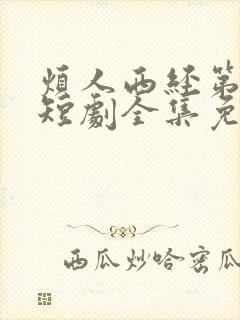 煩人西经第
短劇全集免
西瓜炒哈密瓜